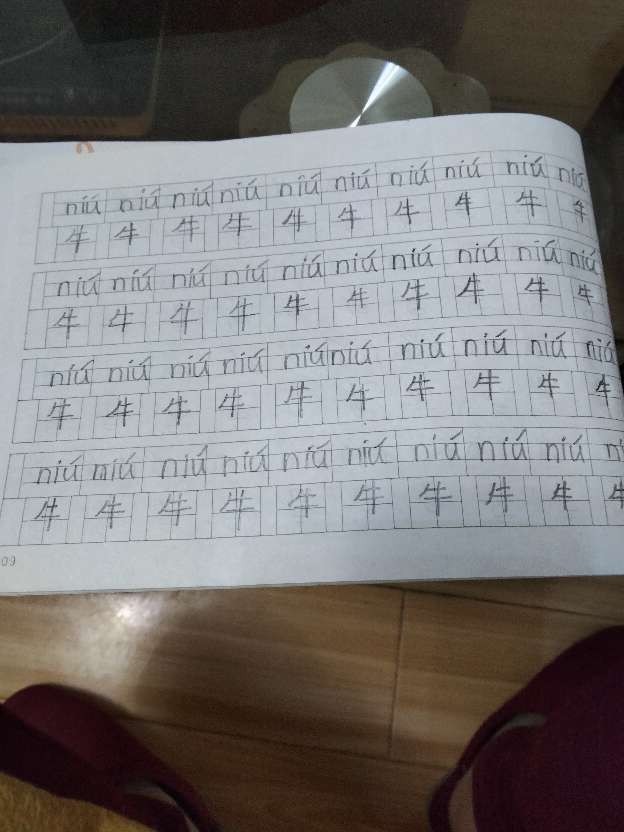 niú niú niú niú niú niú niú niú niú niú
牛 牛 牛 牛 牛 牛 牛 牛 牛 牛
niú niú niú niú niú niú niú niú niú niú
牛 牛 牛 牛 牛 牛 牛 牛 牛 牛
niú niú niú niú niú niú niú niú niú niú
牛 牛 牛 牛 牛 牛 牛 牛 牛 牛
niú niú niú niú niú niú niú niú niú
牛 牛 牛 牛 牛 牛 牛 牛 牛 牛
09